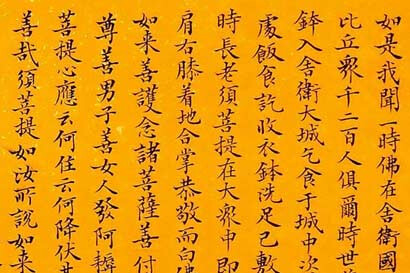 如是我聞一時佛在舍衛國
比丘衆千二百人俱爾時世
鉢入舍衛大城乞食于城中次
處飯食訖收衣鉢洗足已敷
時長老須菩提在大衆中即
肩右膝着地合掌恭敬而白佛
如来善護念諸菩薩善付
尊善男子善女人發阿耨
菩提心應云何住云何降伏其
善哉須菩提如汝所說如来